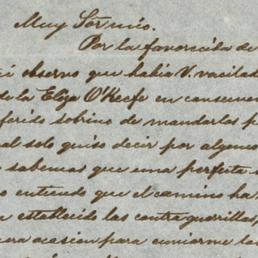 Muy Sor mio.
Por la favorecida de
observo que habia V. vacilad
de la Eliza O'Keefe en
ferido sobrino de mandarlas p
al solo quiso decir por algun
o sabemos que una perfecta s
o entiendo que el camino ha
a establecido las contraguerillas,
era ocasion para enviarme la